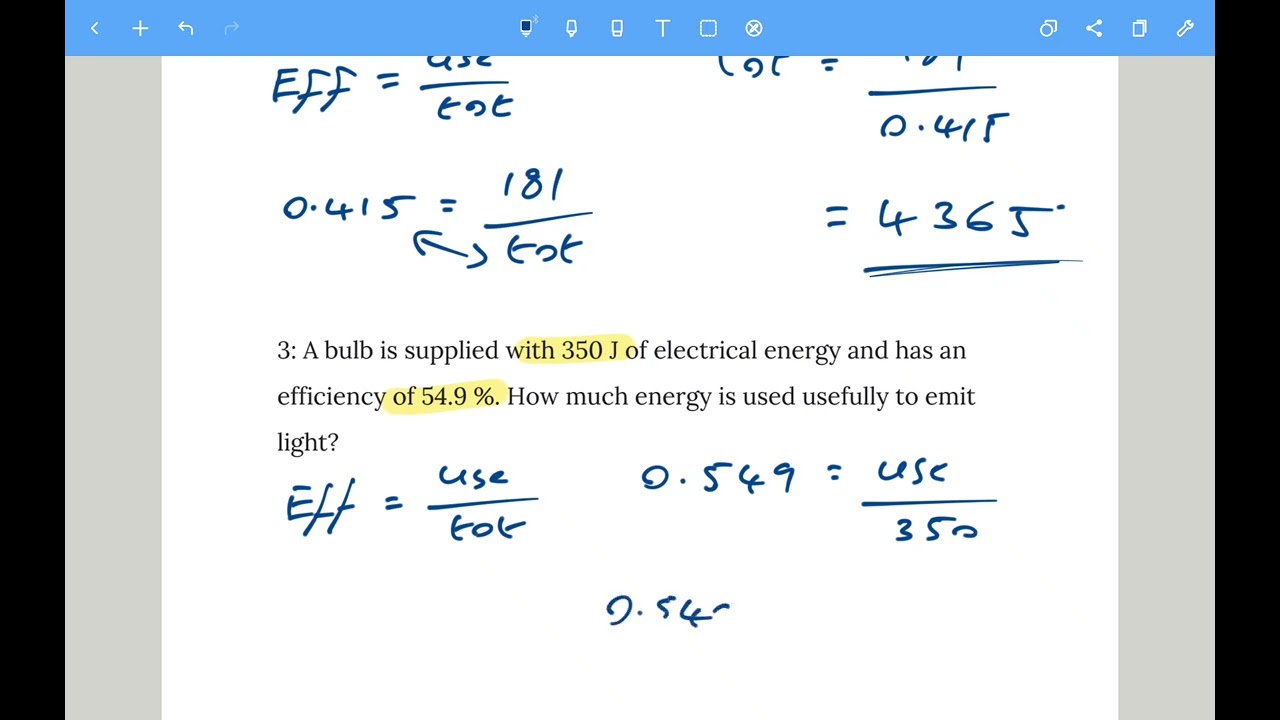 Eff = use / tot
tot = 181 / 0.415
0.415 = 181 / tot
= 4365.
3: A bulb is supplied with 350 J of electrical energy and has an
efficiency of 54.9 %. How much energy is used usefully to emit
light?
Eff = use / tot
0.549 = use / 350
0.54